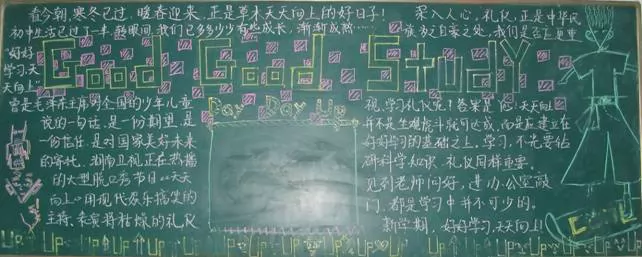 看今朝,寒冬已过,暖春迎来,正是草木天天向上的好日子!
初中生活已过了一半,转眼间,我们已多多少少有些成长,渐渐成熟……
深入人心,礼仪,正是中华民
族为之自豪之处,我们是否正更重
Good Good Study
好好
学习,天
天向上
曾是毛泽东主席对全国的少年儿童
说的一句话,是一份期望,是
一份信任,是对国家美好未来
的寄托,湖南卫视正在热播
的大型脱口秀节目《天天
向上》用现代娱乐搞笑的
主持,来宣扬枯燥的礼仪
Day Day Up
视,学习礼仪呢!答案是
天天向上
并不是坐观虎斗就可达成,而是应建立在
好好学习的基础之上,学习,不光要钻
研科学知识,礼仪同样重要,
见到老师问好,进办公室敲
门,都是学习中并不可少的。
新学期,好好学习,天天向上!
UP UP UP UP UP UP UP UP UP UP UP UP